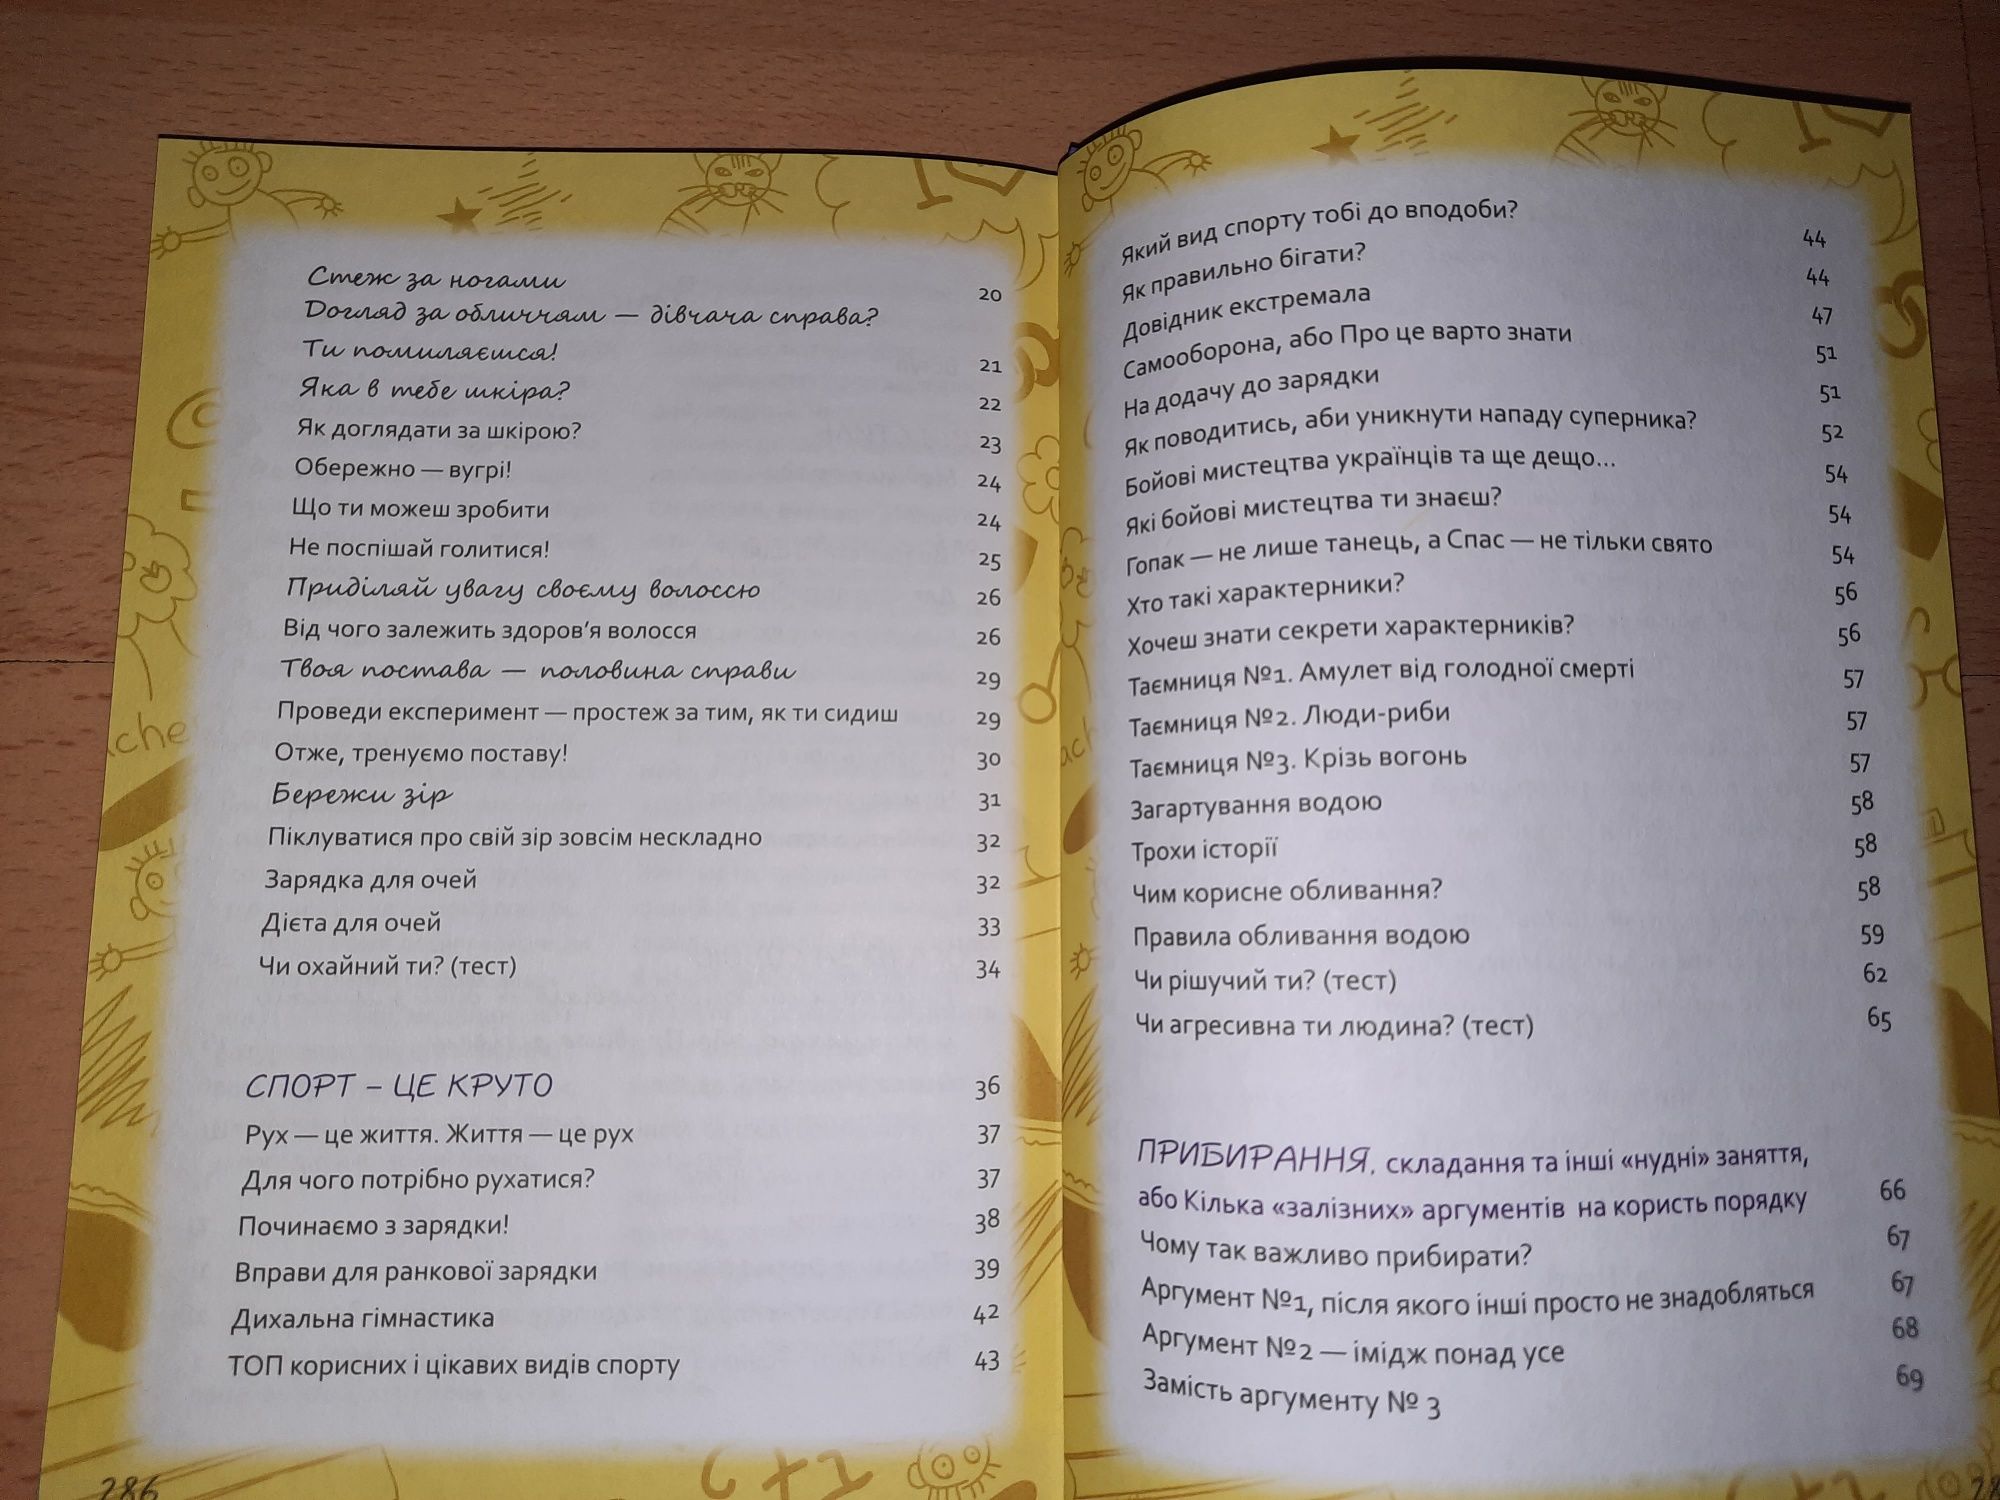 Стеж за ногами 20
Догляд за обличчям — дівчача справа?
Ти помиляєшся! 21
Яка в тебе шкіра? 22
Як доглядати за шкірою? 23
Обережно — вугрі! 24
Що ти можеш зробити 24
Не поспішай голитися! 25
Приділяй увагу своєму волоссю 26
Від чого залежить здоров’я волосся 26
Твоя постава — половина справи 29
Проведи експеримент — простеж за тим, як ти сидиш 29
Отже, тренуємо поставу! 30
Бережи зір 31
Піклуватися про свій зір зовсім нескладно 32
Зарядка для очей 32
Дієта для очей 33
Чи охайний ти? (тест) 34
СПОРТ – ЦЕ КРУТО 36
Рух — це життя. Життя — це рух 37
Для чого потрібно рухатися? 37
Починаємо з зарядки! 38
Вправи для ранкової зарядки 39
Дихальна гімнастика 42
ТОП корисних і цікавих видів спорту 43
286
Який вид спорту тобі до вподоби? 44
Як правильно бігати? 44
Довідник екстремала 47
Самооборона, або Про це варто знати 51
На додачу до зарядки 51
Як поводитись, аби уникнути нападу суперника? 52
Бойові мистецтва українців та ще дещо... 54
Які бойові мистецтва ти знаєш? 54
Гопак — не лише танець, а Спас — не тільки свято 54
Хто такі характерники? 56
Хочеш знати секрети характерників? 56
Таємниця №1. Амулет від голодної смерті 57
Таємниця №2. Люди-риби 57
Таємниця №3. Крізь вогонь 57
Загартування водою 58
Трохи історії 58
Чим корисне обливання? 58
Правила обливання водою 59
Чи рішучий ти? (тест) 62
Чи агресивна ти людина? (тест) 65
ПРИБИРАННЯ, складання та інші «нудні» заняття,
або Кілька «залізних» аргументів на користь порядку 66
Чому так важливо прибирати? 67
Аргумент №1, після якого інші просто не знадобляться 67
Аргумент №2 — імідж понад усе 68
Замість аргументу № 3 69